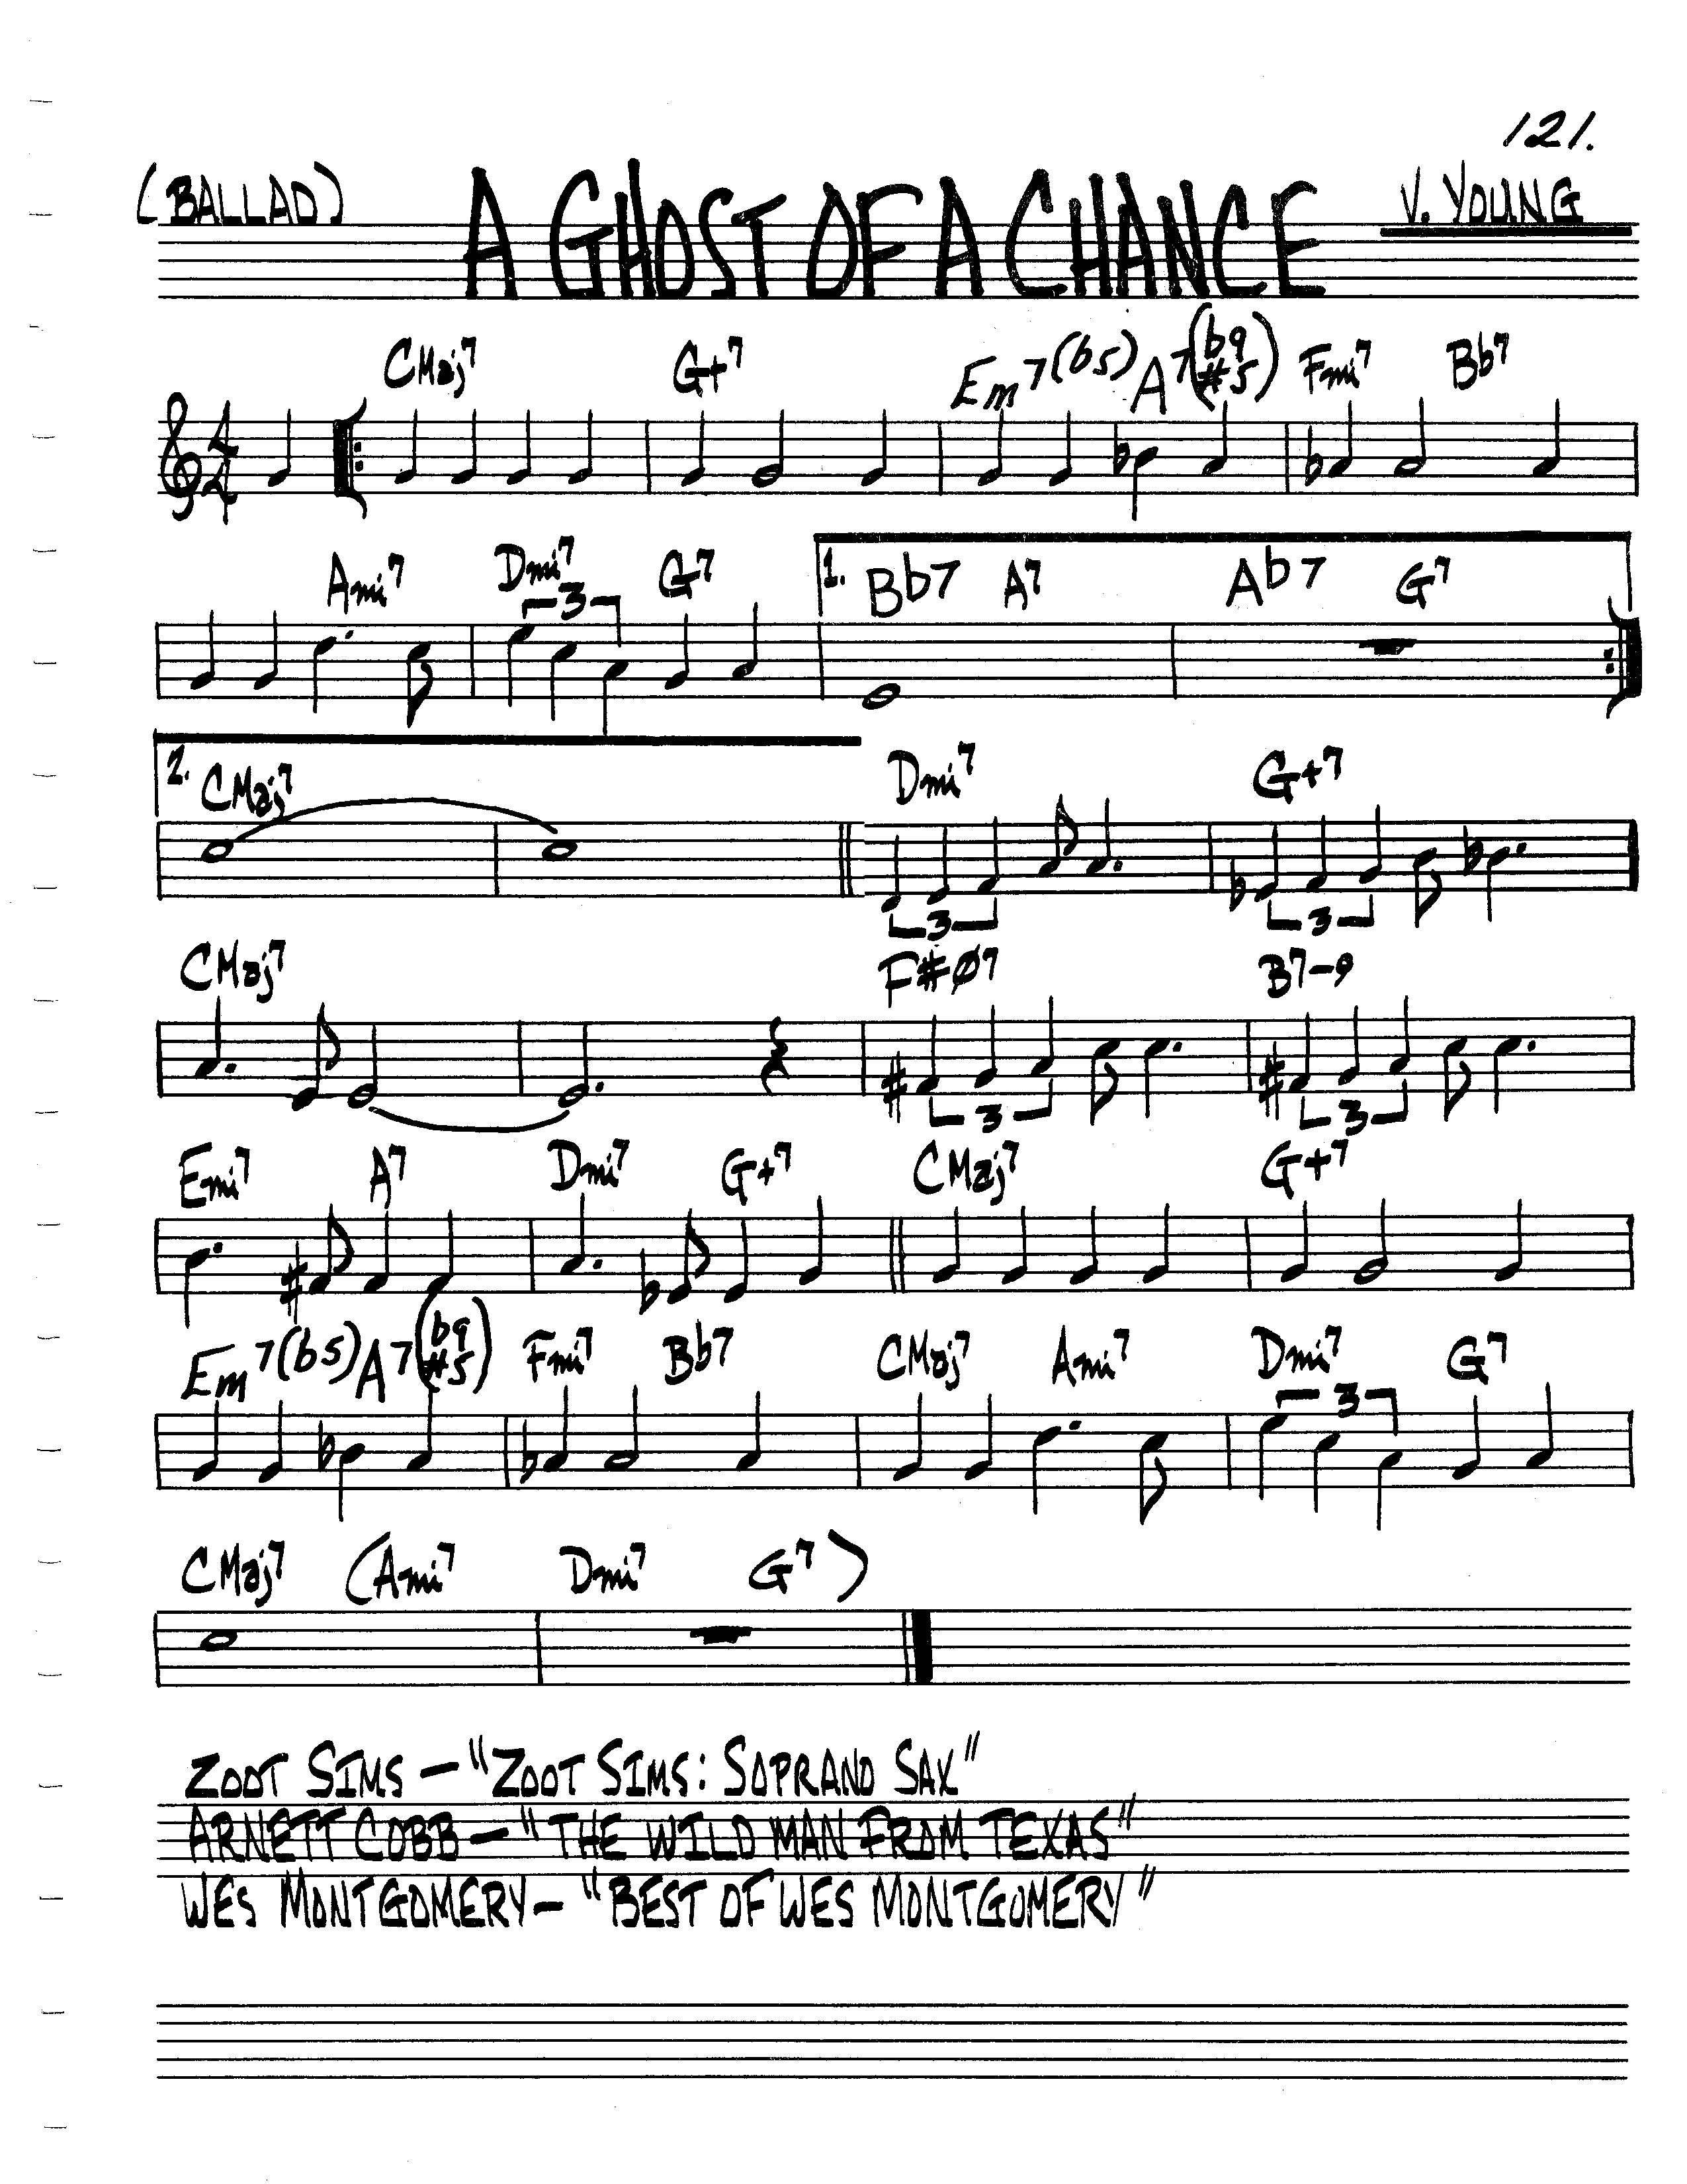 121.
(BALLAD) A GHOST OF A CHANCE V. YOUNG
CMaj7 G+7 Em7(b5) A7(b9 #5) Fmi7 Bb7
4 4
Ami7 Dmi7 G7 1. Bb7 A7 Ab7 G7
3
2. CMaj7 Dmi7 G+7
3 3
CMaj7 F#Ø7 B7-9
3 3
Emi7 A7 Dmi7 G+7 CMaj7 G+7
Em7(b5) A7(b9 #5) Fmi7 Bb7 CMaj7 Ami7 Dmi7 G7
3
CMaj7 (Ami7 Dmi7 G7)
ZOOT SIMS — "ZOOT SIMS: SOPRANO SAX"
ARNETT COBB — "THE WILD MAN FROM TEXAS"
WES MONTGOMERY — "BEST OF WES MONTGOMERY"